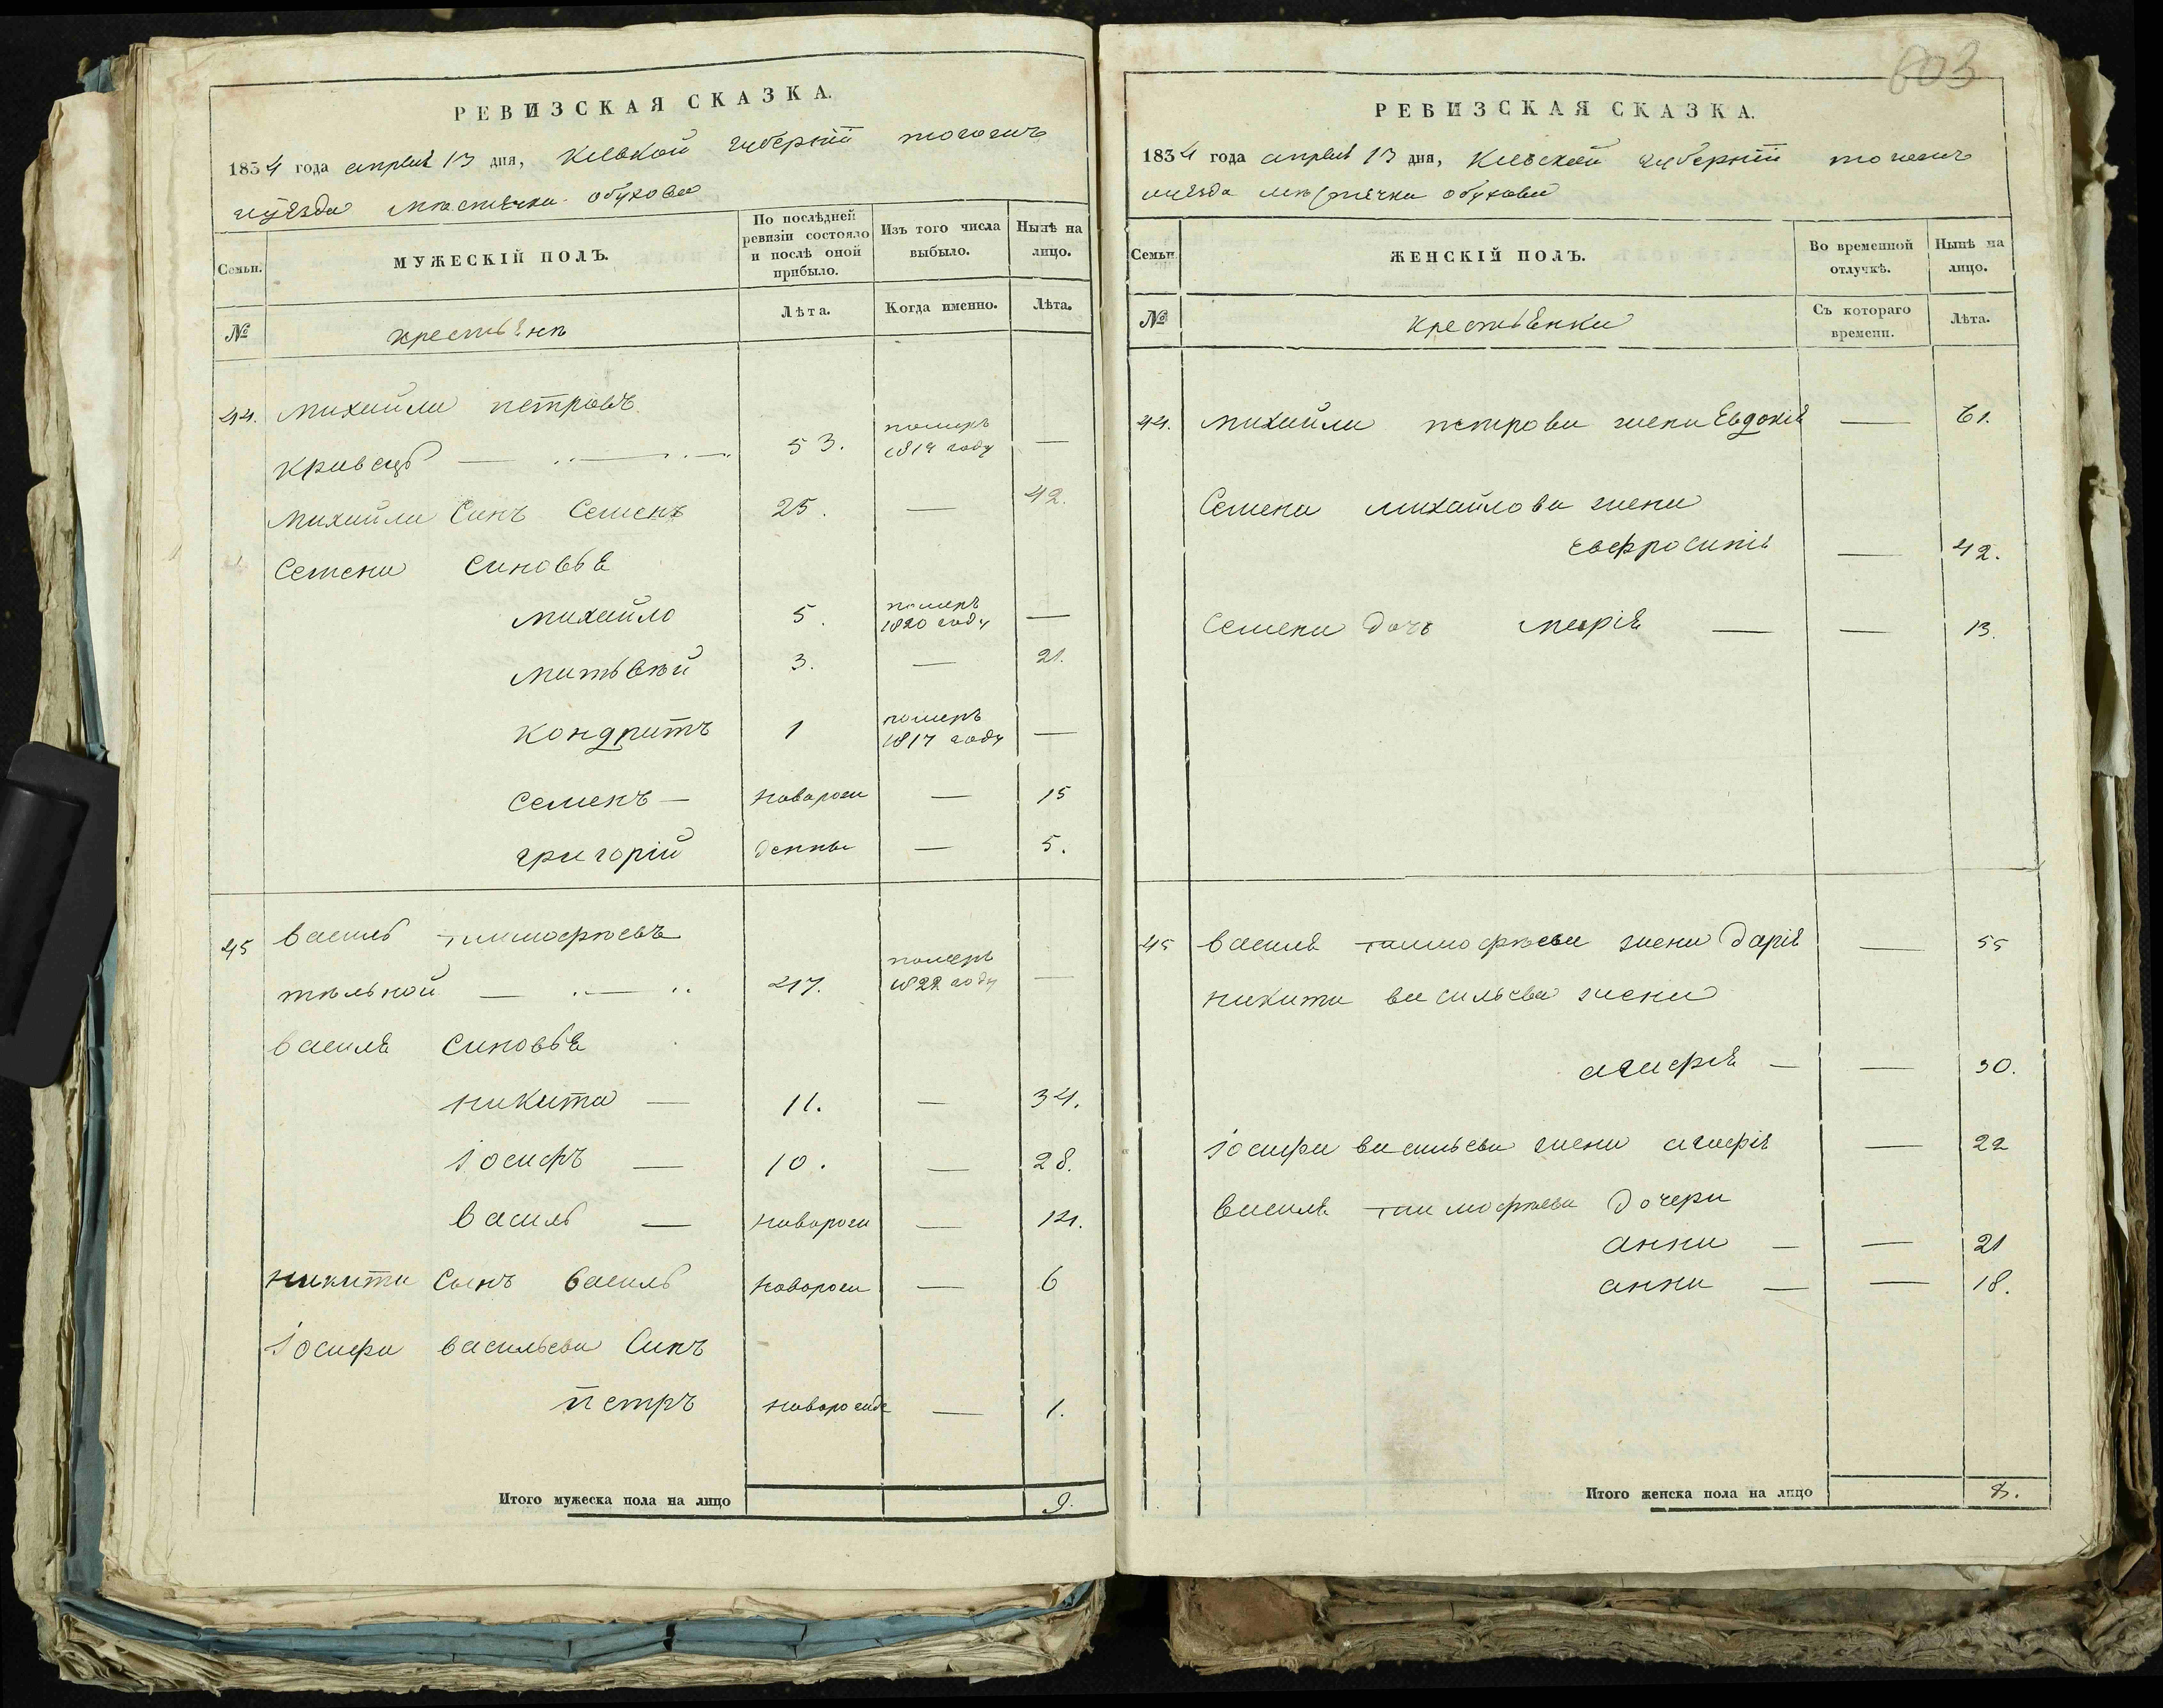 РЕВИЗСКАЯ СКАЗКА.
1834 года апреля 13 дня, Киевской губернїи тогожъ
уѣзда мѣстечка обухова
Семьи.
МУЖЕСКІЙ ПОЛЪ.
По послѣдней ревизіи состояло и послѣ оной прибыло.
Изъ того числа выбыло.
Нынѣ на лицо.
№
крестьянъ
Лѣта.
Когда именно.
Лѣта.
44. михайла петровъ
кривецъ — 53. померъ 1819 году —
михайла Синъ Семенъ 25. — 42.
Семена Синовья
михайло 5. померъ 1820 году —
матьвѣй 3. — 21.
кондратъ 1 померъ 1817 году —
семенъ — новорож — 15
григорїй денны — 5.
45 василь тимофѣевъ
тѣльной — 47. померъ 1822 году —
василя Синовья
никита — 11. — 34.
іосифъ — 10. — 28.
василь — новорож — 14.
никити Сынъ василь новорож — 6
іосифа васильева Синъ
петръ новорожде — 1.
Итого мужеска пола на лицо 9.
603
РЕВИЗСКАЯ СКАЗКА.
1834 года апреля 13 дня, Киевской губернїи тогожъ
уѣзда мѣстечка обухова
Семьи
ЖЕНСКІЙ ПОЛЪ.
Во временной отлучкѣ.
Нынѣ на лицо.
№
крестьянки
Съ котораго времени.
Лѣта.
44. михайла петрова жена Евдокія — 61.
Семена михайлова жена
евфросинія — 42.
Семена дочъ марія — — 13.
45 василя тимофѣева жена дарія — 55
никити васильева жена
агафія — — 30.
іосифа васильева жена агафія — 22
василя тимофѣева дочери
анна — — 21
анна — — 18.
Итого женска пола на лицо 8.